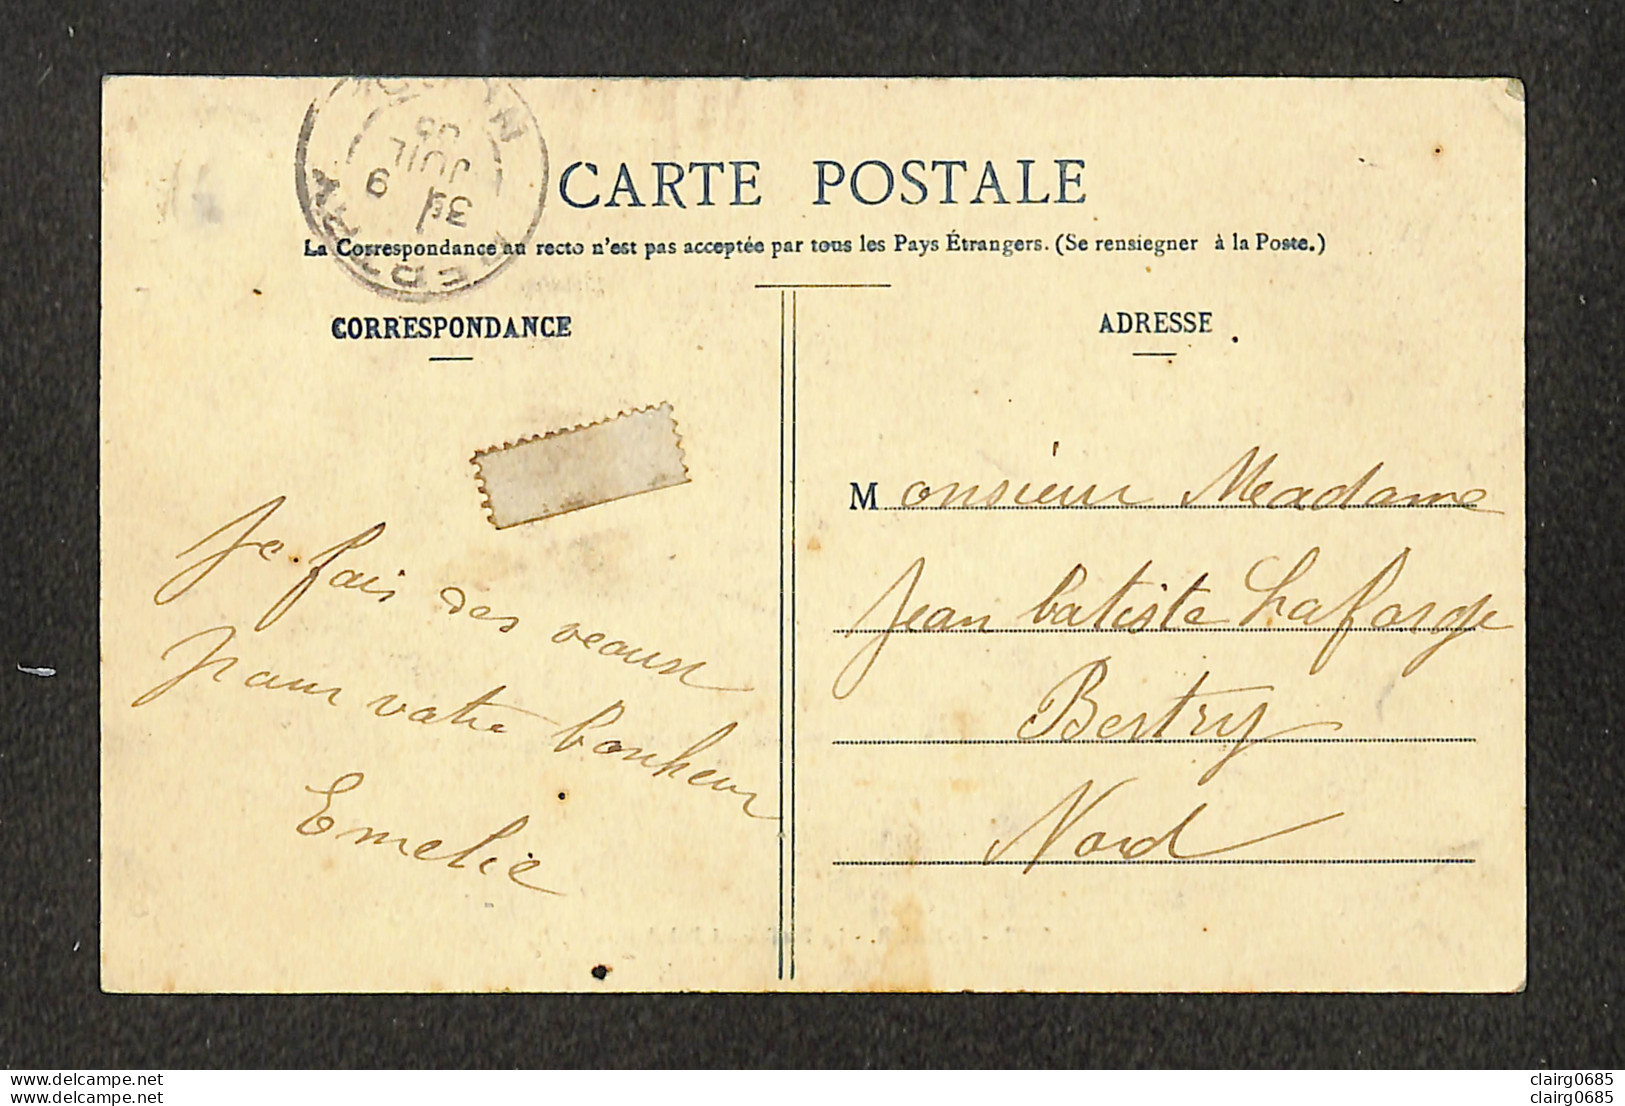 CARTE POSTALE
La Correspondance au recto n'est pas acceptée par tous les Pays Étrangers. (Se rensiegner à la Poste.)
CORRESPONDANCE
ADRESSE
Je fais des veaux
pour votre bonheur
Emelie
Monsieur Madame
Jean batiste Laforge
Bertry
Nord
BERTRY
3E
9
JUIL
05
delcampe.net
clairg0685
clairg0685